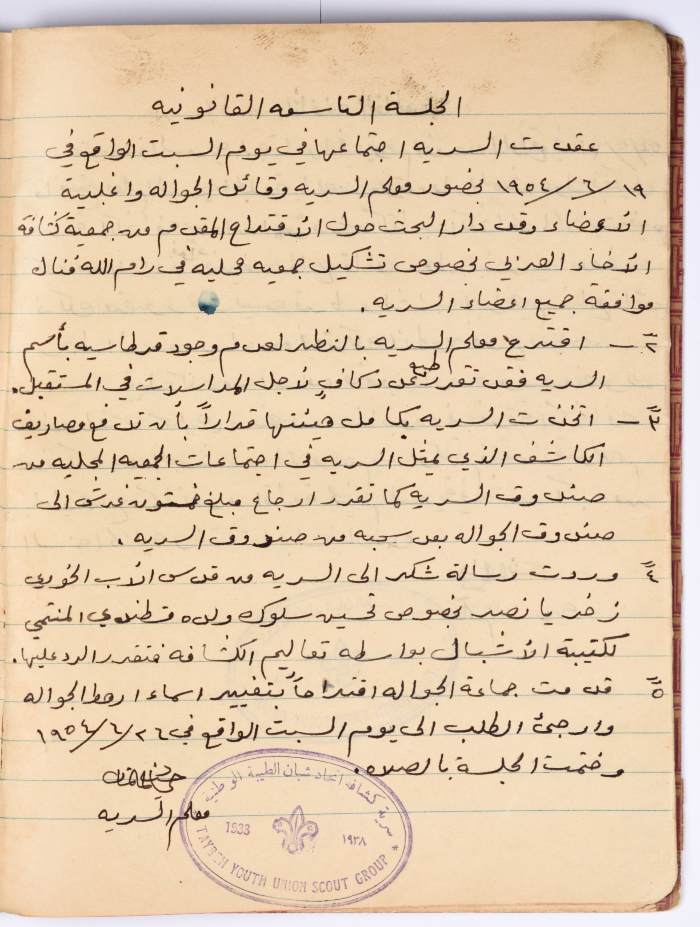 الجلسة التاسعه القانونيه
عقدت السريه اجتماعها في يوم السبت الواقع في
١٩٥٤/٦/١٩ بحضور معلم السريه وقائد الجواله واغلبية
الاعضاء وقد دار البحث حول الاقتراح المقدم من جمعية كشافة
الاخاء العربي بخصوص تشكيل جمعيه محليه في رام الله فنال
موافقة جميع اعضاء السريه.
٢ً – اقترح معلم السريه بالنظر لعدم وجود قرطاسيه بأسم
السريه فقد تقرر طبع كاف لاجل المراسلات في المستقبل.
٣ً – اتخذت السريه بكامل هيئتها قراراً بأن تدفع مصاريف
الكاشف الذي يمثل السريه في اجتماعات الجمعيه المحليه من
صندوق السريه كما تقرر ارجاع مبلغ ستون غرش الى
صندوق الجواله بعد سحبه من صندوق السريه.
٤ً وردت رسالة شكر الى السريه من قدس الأب الخوري
زخريا نصر بخصوص تحسين سلوك ولده قسطندي المنتمي
لكتيبة الأشبال بواسطه تعاليم الكشافه فتقرر الرد عليها.
٥ً قدمت جماعة الجواله اقتراحاً بتغيير اسماء ارهط الجواله
وارجئ الطلب الى يوم السبت الواقع في ١٩٥٤/٦/٢٦
وختمت الجلسة بالصلاه.
معلم السريه
سرية كشافة اتحاد شبان الطيبة الوطنية
1938 ١٩٣٨
TAYBEH YOUTH UNION SCOUT GROUP *